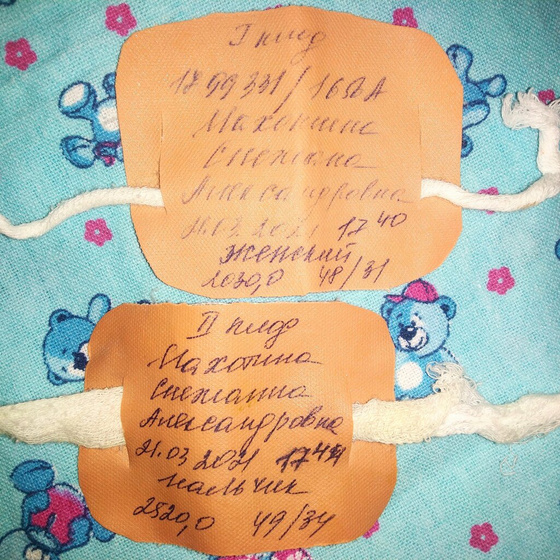 I плод
1799331/168А
Махонина
Снежана
Александровна
21.03.2021 17 40
женский
2030,0 48/31
II плод
Махонина
Снежанна
Александровна
21.03 2021 17 44
мальчик
2520,0 49/34